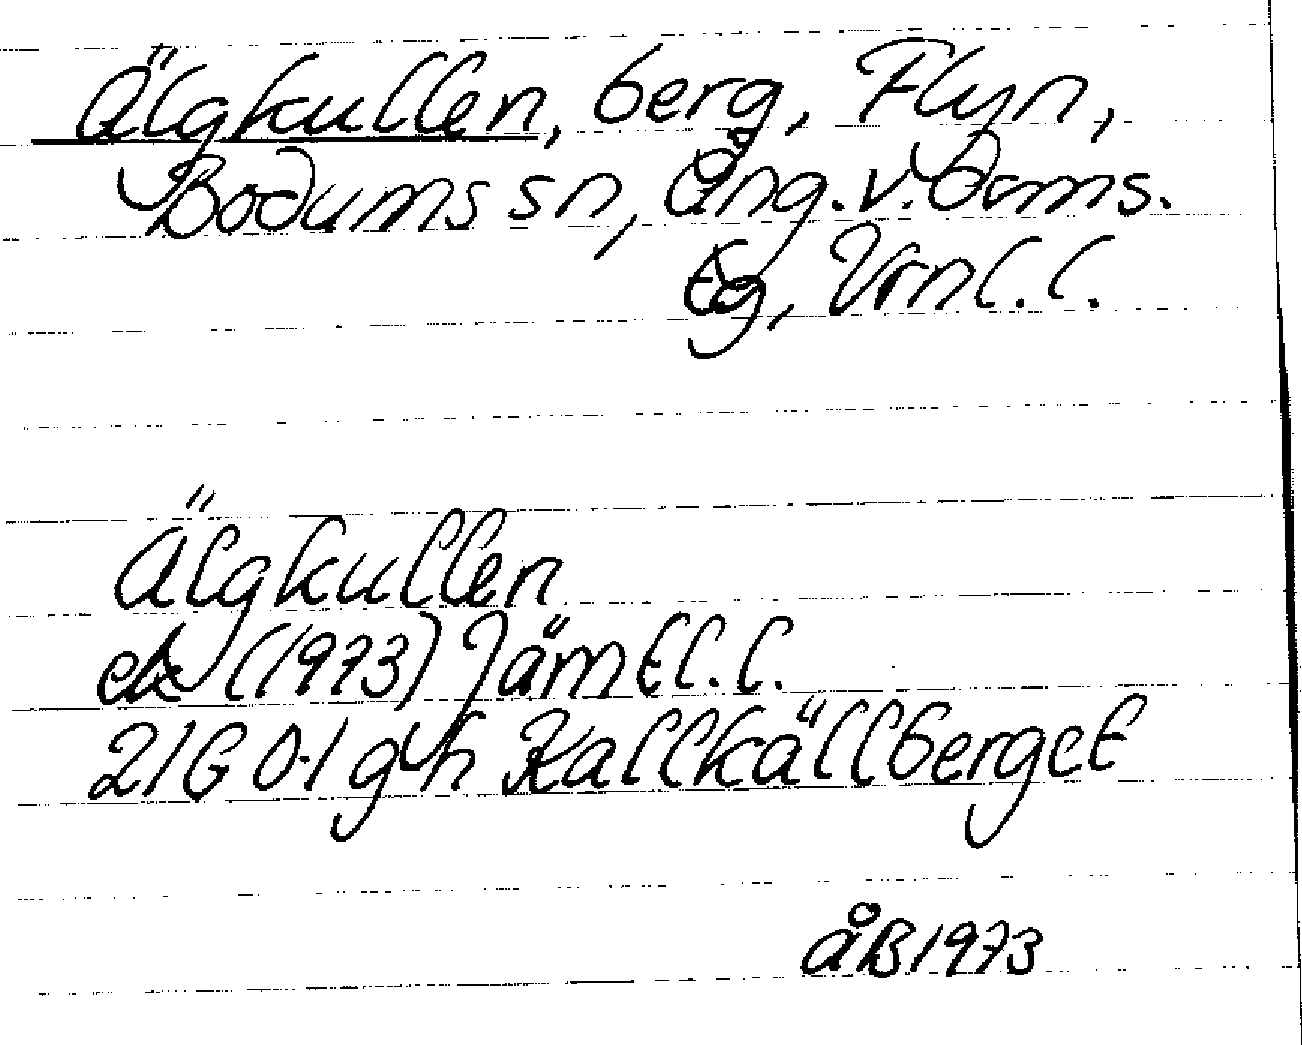 Älgkullen, berg, Flyn,
Bodums sn, Ång.v.doms.
tg, Vrnl.l.
Älgkullen
ek (1973) Jämtl.l.
21G 0-1 g-h Kallkällberget
åB 1973